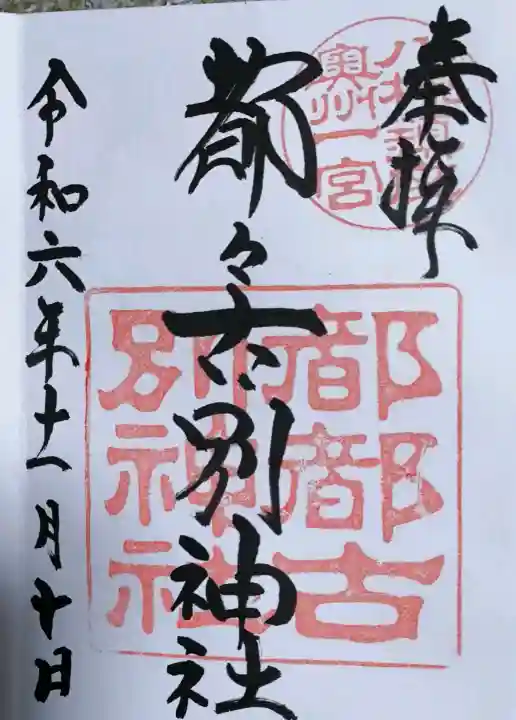 奉拝
奥州一宮
都々古別神社
都都古
別神社
令和六年十一月十日